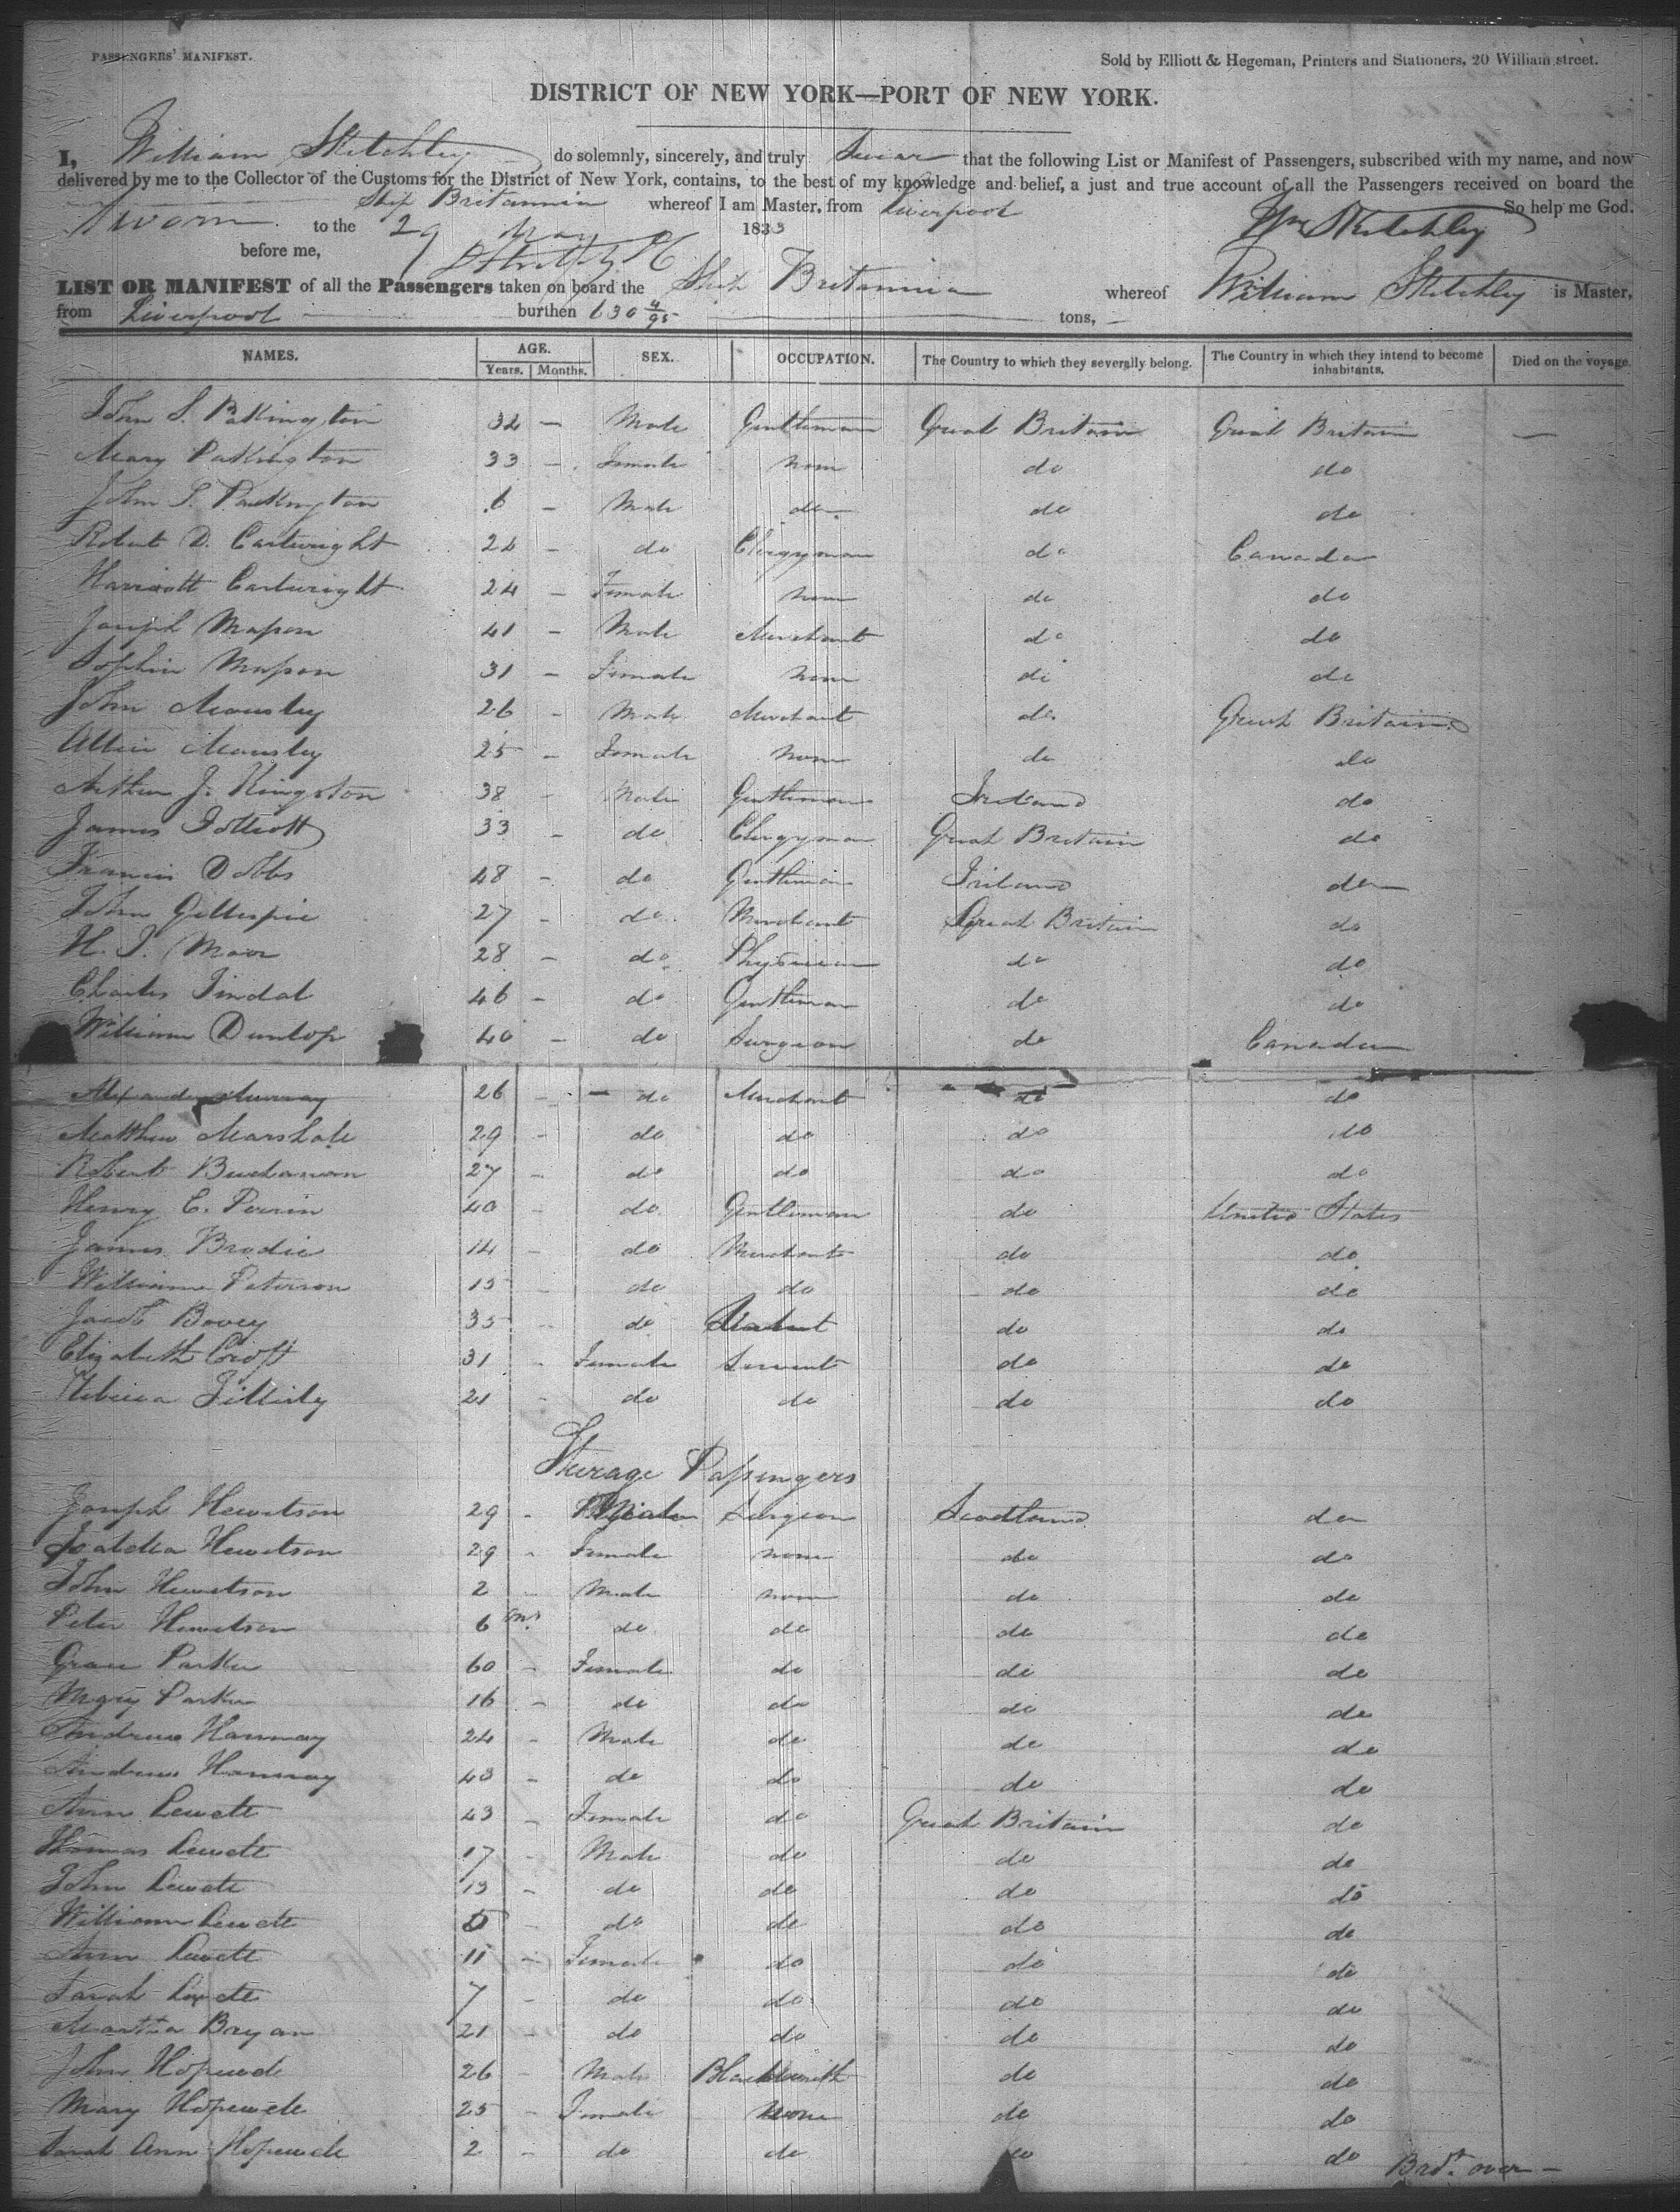 PASSENGERS' MANIFEST.
Sold by Elliott & Hegeman, Printers and Stationers, 20 William street.
DISTRICT OF NEW YORK—PORT OF NEW YORK.
I, William Sketchley do solemnly, sincerely, and truly Swear that the following List or Manifest of Passengers, subscribed with my name, and now
delivered by me to the Collector of the Customs for the District of New York, contains, to the best of my knowledge and belief, a just and true account of all the Passengers received on board the
Ship Britannia whereof I am Master, from Liverpool So help me God.
Sworn to the 29 May 1833 Wm Sketchley
before me,
LIST OR MANIFEST of all the Passengers taken on board the Ship Britannia whereof William Sketchley is Master,
from Liverpool burthen 630 4/95 tons,
NAMES. AGE. SEX. OCCUPATION. The Country to which they severally belong. The Country in which they intend to become inhabitants. Died on the voyage.
Years. Months.
John S. Pakington 32 — Male Gentleman Great Britain Great Britain —
Mary Pakington 33 — Female none do do
John S. Pakington 6 — Male do do do
Robert D. Cartwright 26 — do Clergyman do Canada
Harriott Cartwright 24 — Female none do do
Joseph Mason 41 — Male Merchant do do
Sophia Mason 31 — Female none do do
John Mousley 26 — Male Merchant do Great Britain
Mousley 25 — Female none do do
Arthur J. Kingston 38 — Male Gentleman Ireland do
James 33 — do Clergyman Great Britain do
Francis Dobbs 48 — do Gentleman Ireland do
John Gillespie 27 — do Merchant Great Britain do
H. J. Moor 28 — do Physician do do
Charles Tindal 46 — do Gentleman do do
William Dunlop 40 — do Surgeon do Canada
Alexander Murray 26 — do Merchant do do
Matthew Marshall 29 — do do do do
Robert Buchanan 27 — do do do do
Henry C. Perrin 40 — do Gentleman do United States
James Brodie 14 — do Merchant do do
William Peterson 15 — do do do do
Jacob Bovey 35 — do do do
Elizabeth Croft 31 — Female Servant do do
Rebecca 21 — do do do do
Steerage Passengers
Joseph Hewetson 29 — Male Surgeon Scotland do
Hewetson 29 — Female none do do
John Hewetson 2 — Male none do do
Peter Hewetson 6 ms do do do do
Grace Parker 60 — Female do do do
Mary Parker 16 — do do do do
Andrew Hannay 24 — Male do do do
Andrew Hannay 43 — do do do do
Ann Lewete 43 — Female do Great Britain do
Thomas Lewete 17 — Male do do do
John Lewete 13 — do do do do
William Lewete 5 — do do do do
Ann Lewete 11 — Female do do do
Sarah Lewete 7 — do do do do
Martha Bryan 21 — do do do do
John Hopewele 26 — Male Blacksmith do do
Mary Hopewele 25 — Female none do do
Sarah Ann Hopewele 2 — do do do do
Brdt. over —